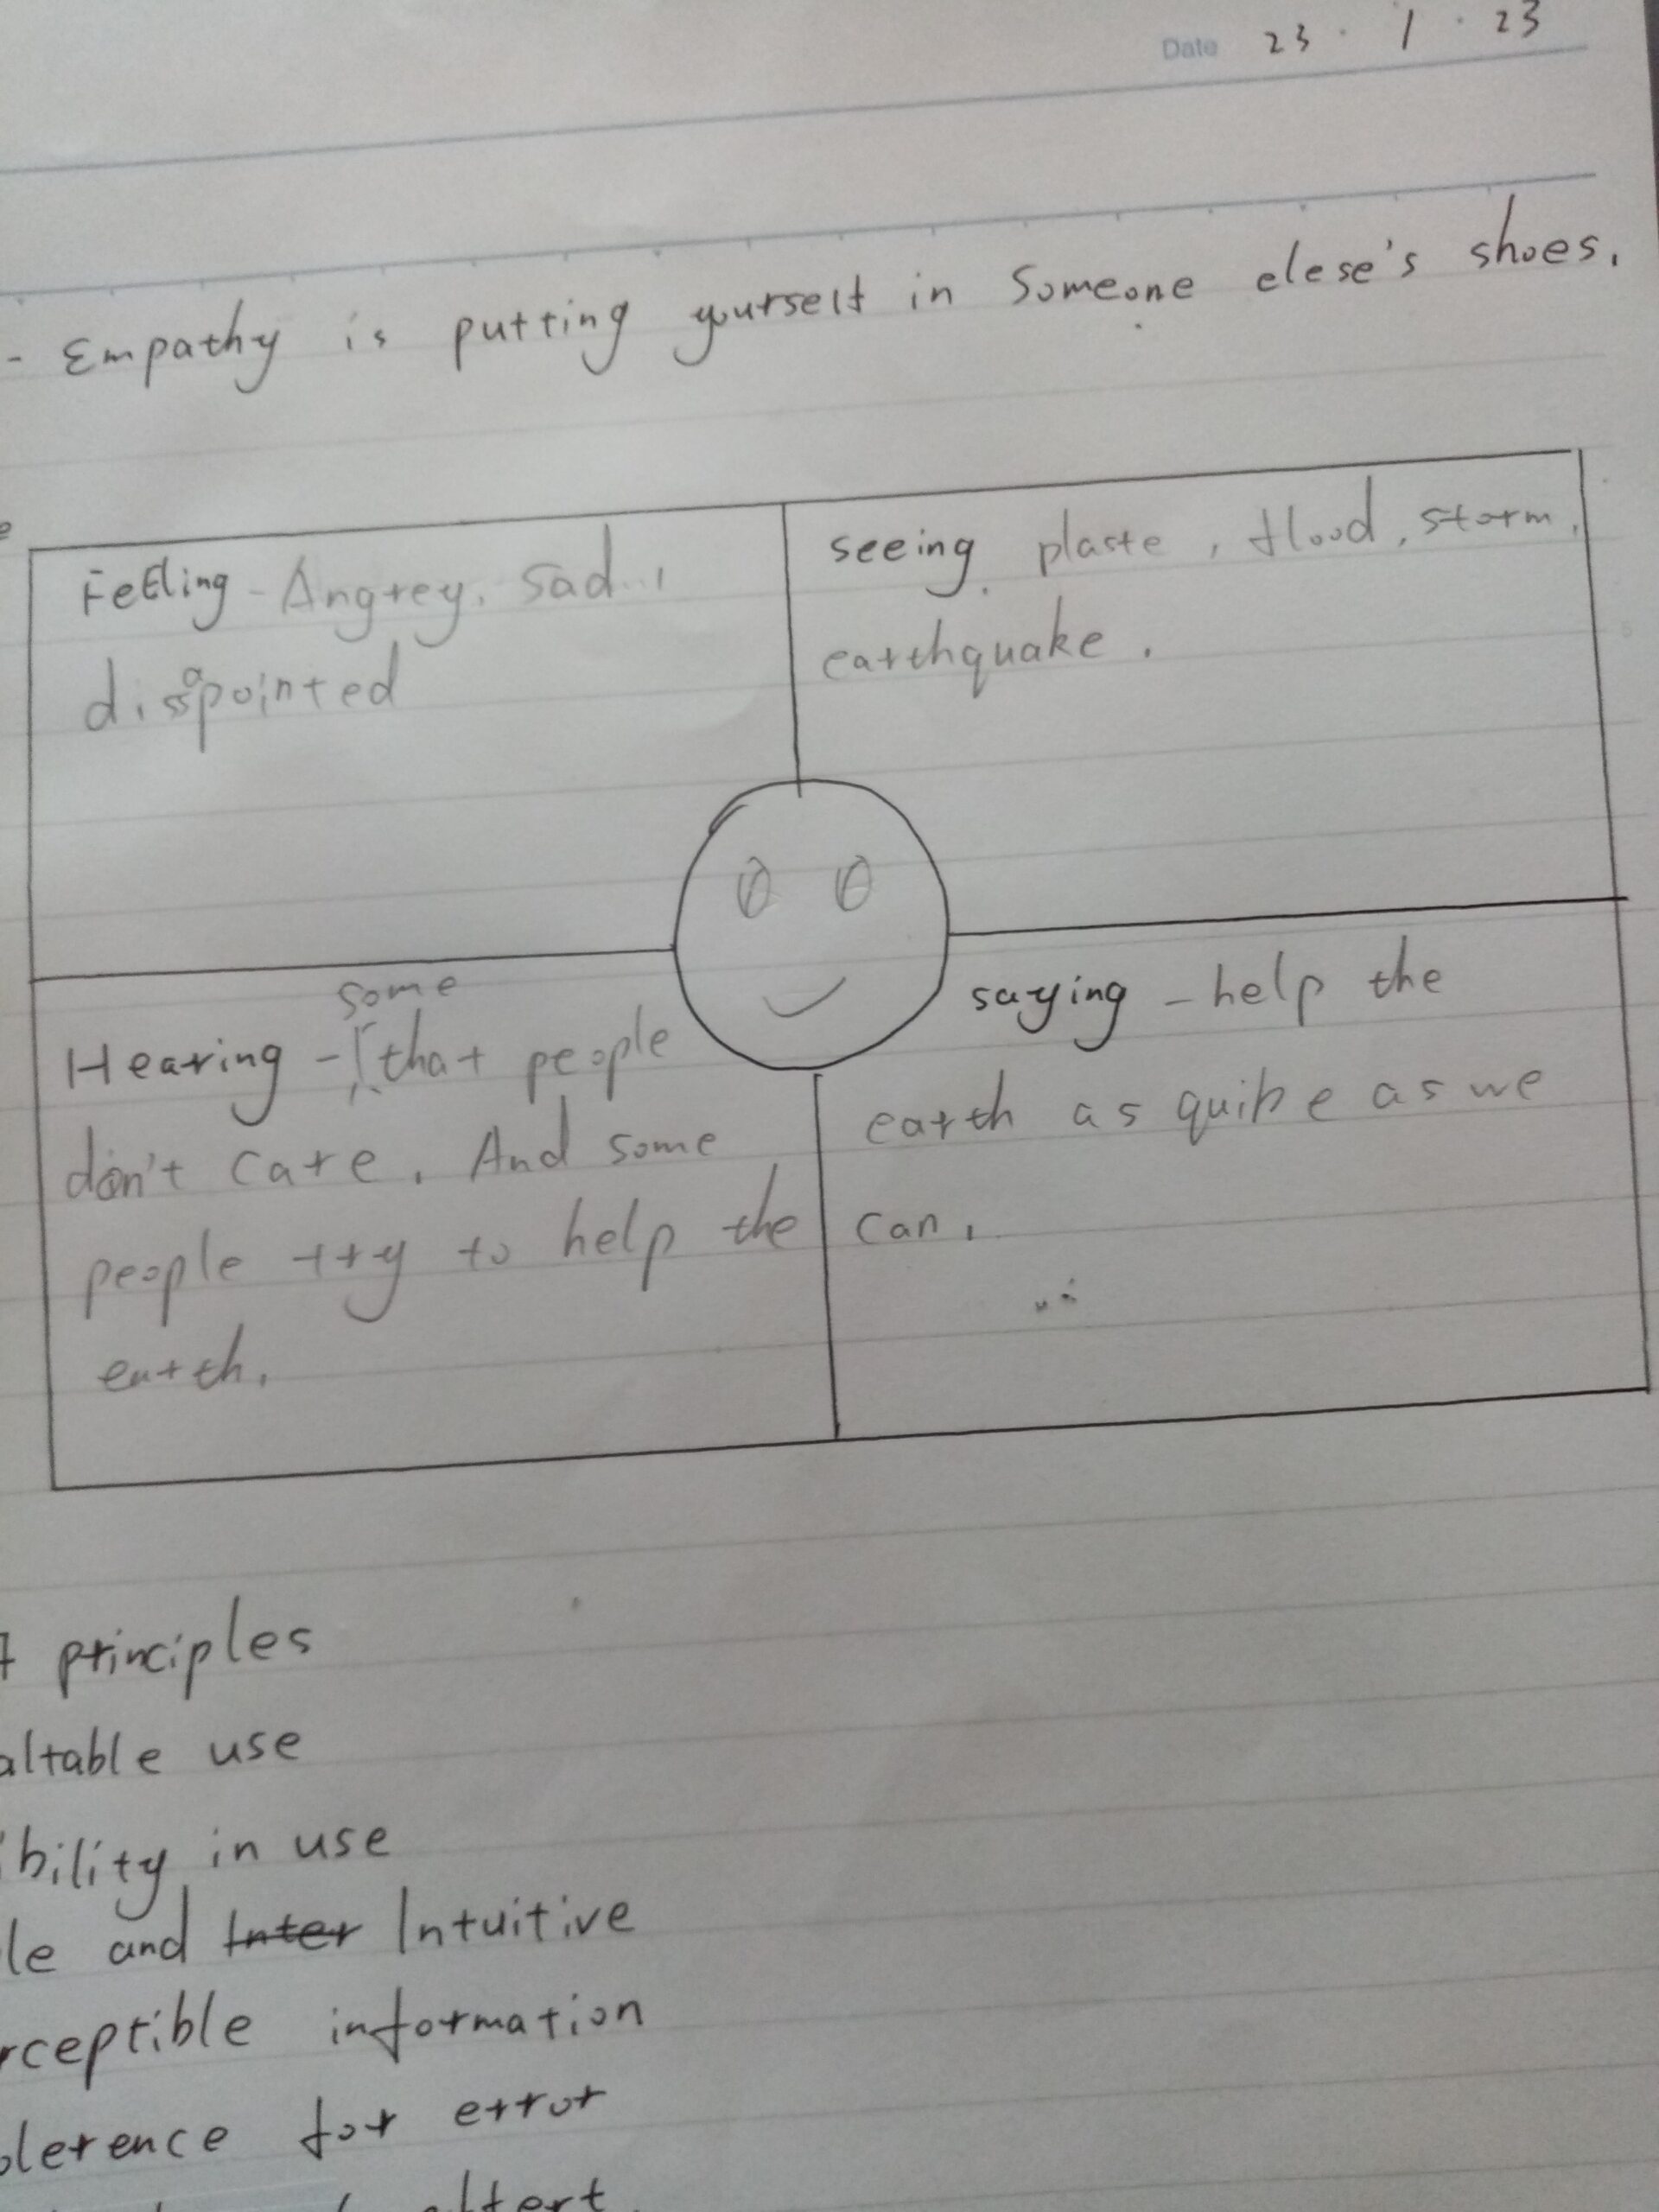 Date 23 . 1 . 23
- Empathy is putting yourself in Someone elese's shoes.
Feeling - Angrey, Sad,
disapointed
seeing, plaste, flood, storm,
earthquake.
some
Hearing - that people
don't care. And some
people try to help the
earth.
saying - help the
earth as quike as we
can.
7 principles
altable use
ibility in use
le and Inter Intuitive
rceptible information
olerence for error